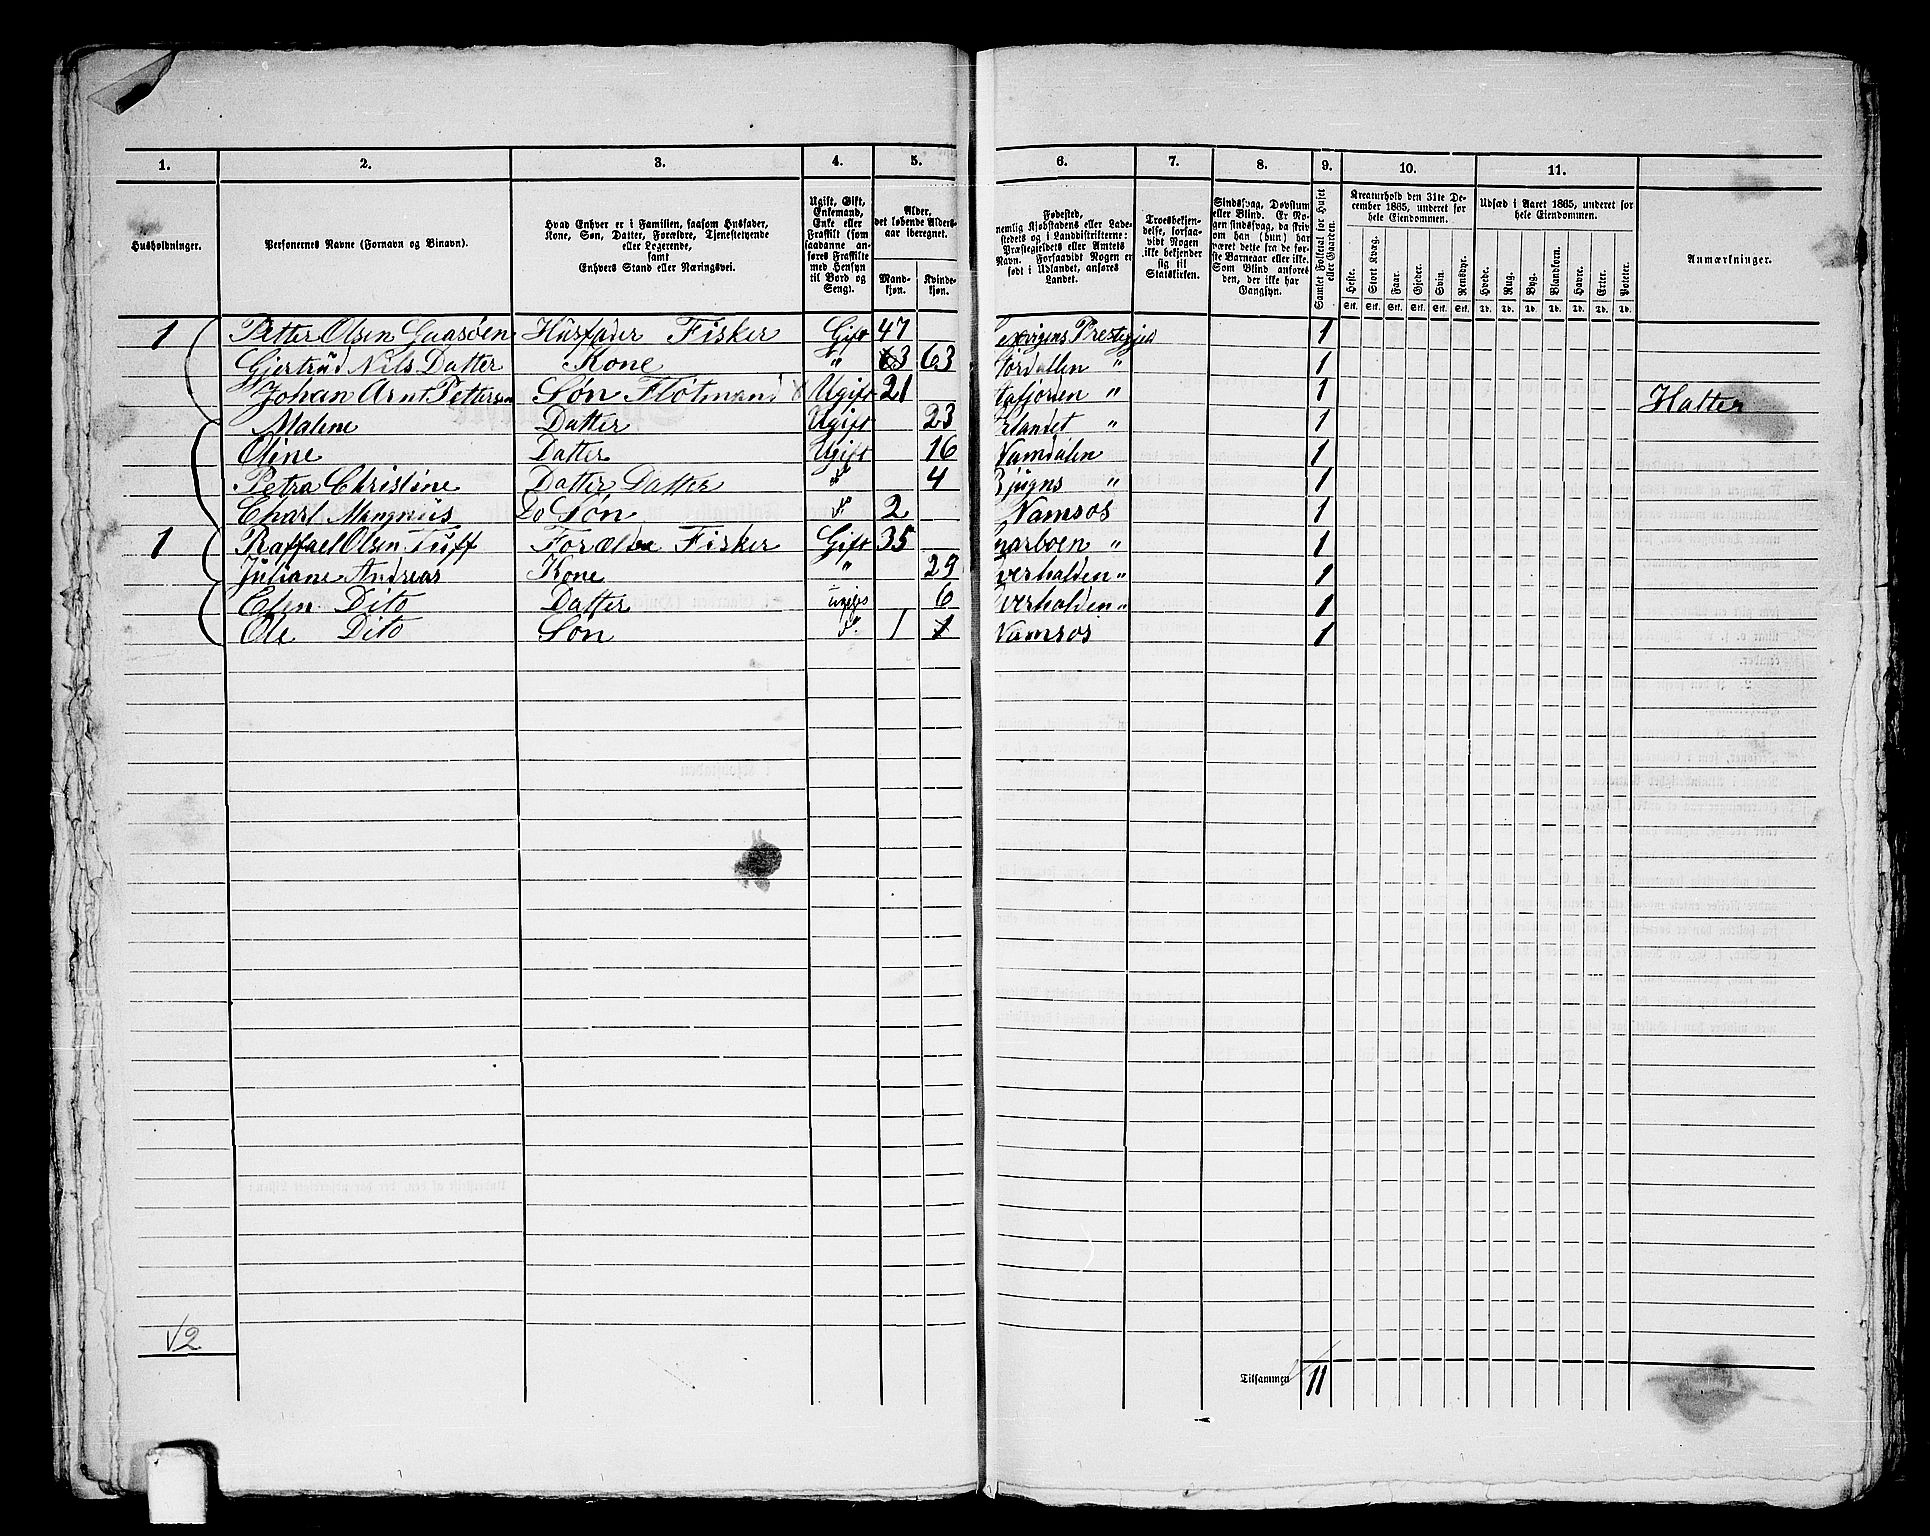 1. 2. 3. 4. 5. 6. 7. 8. 9. 10. 11.
Husholdninger.
Personernes Navne (Fornavn og Binavn).
Hvad Enhver er i Familien, saasom Husfader,
Kone, Søn, Datter, Forældre, Tjenestetyende
eller Logerende,
samt
Enhvers Stand eller Næringsvei.
Ugift, Gift,
Enkemand,
Enke eller
Fraskilt (som
saadanne an-
føres Fraskilte
med Hensyn
til Bord og
Seng).
Alder,
det løbende Alders-
aar iberegnet.
Mand-
kjøn.
Kvinde-
kjøn.
Fødested,
nemlig Kjøbstadens eller Lade-
stedets og i Landdistrikterne:
Præstegjeldets eller Amtets
Navn. Forsaavidt Nogen er
født i Udlandet, anføres
Landet.
Troesbekjen-
delse, forsaa-
vidt Nogen
ikke bekjender
sig til
Statskirken.
Sindssvag, Døvstum
eller Blind. Er No-
gen sindssvag, da skriv
om han (hun) har
været dette fra de før-
ste Barneaar eller ikke.
Som Blind anføres
den, der ikke har
Gangsyn.
Samlet Folketal for Huset
eller Gaarden.
Kreaturhold den 31te De-
cember 1885, underet for
hele Eiendommen.
Heste. Stort Kvæg. Faar. Gjeder. Svin. Rensdyr.
Stk. Stk. Stk. Stk. Stk. Stk.
Udsæd i Aaret 1885, underet for
hele Eiendommen.
Hvede. Rug. Byg. Blandkorn. Havre. Erter. Poteter.
Td. Td. Td. Td. Td. Td. Td.
Anmærkninger.
1 Petter Olsen Gaasøen Husfader Fisker Gift 47 Prestegjeld 1
Gjertrud Nils Datter Kone " 63 63 " 1
Johan Arnt Pettersen Søn Flötmand Ugift 21 " 1 Halter
Malene Datter Ugift 23 " 1
Oline Datter Ugift 16 Namdalen 1
Petra Christine Datter Datter " 4 Bjugns " 1
Charl Mangnus Do Søn 2 Namsos 1
1 Raffael Olsen Tuff Forældre Fisker Gift 35 " 1
Juliane Andreas Kone " 29 Overhalden " 1
Elen Dito Datter 6 Overhalden " 1
Ole Dito Søn 1 1 Namsos 1
√2
Tilsammen 11